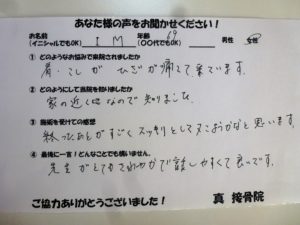 あなた様の声をお聞かせください！
お名前 年齢
（イニシャルでもOK） I M （〇〇代でもOK） 69 男性 女性
① どのようなお悩みで来院されましたか
肩・こしが ひざが 痛くて来ています。
② どのようにして当院を知りましたか
家の近くなので知りました
③ 施術を受けての感想
終ったあとがすごくスッキリとして 思います。
④ 最後に一言！どんなことでも構いません。
先生がとても で話しやすくて良いです。
ご協力ありがとうございました！ 真 接骨院